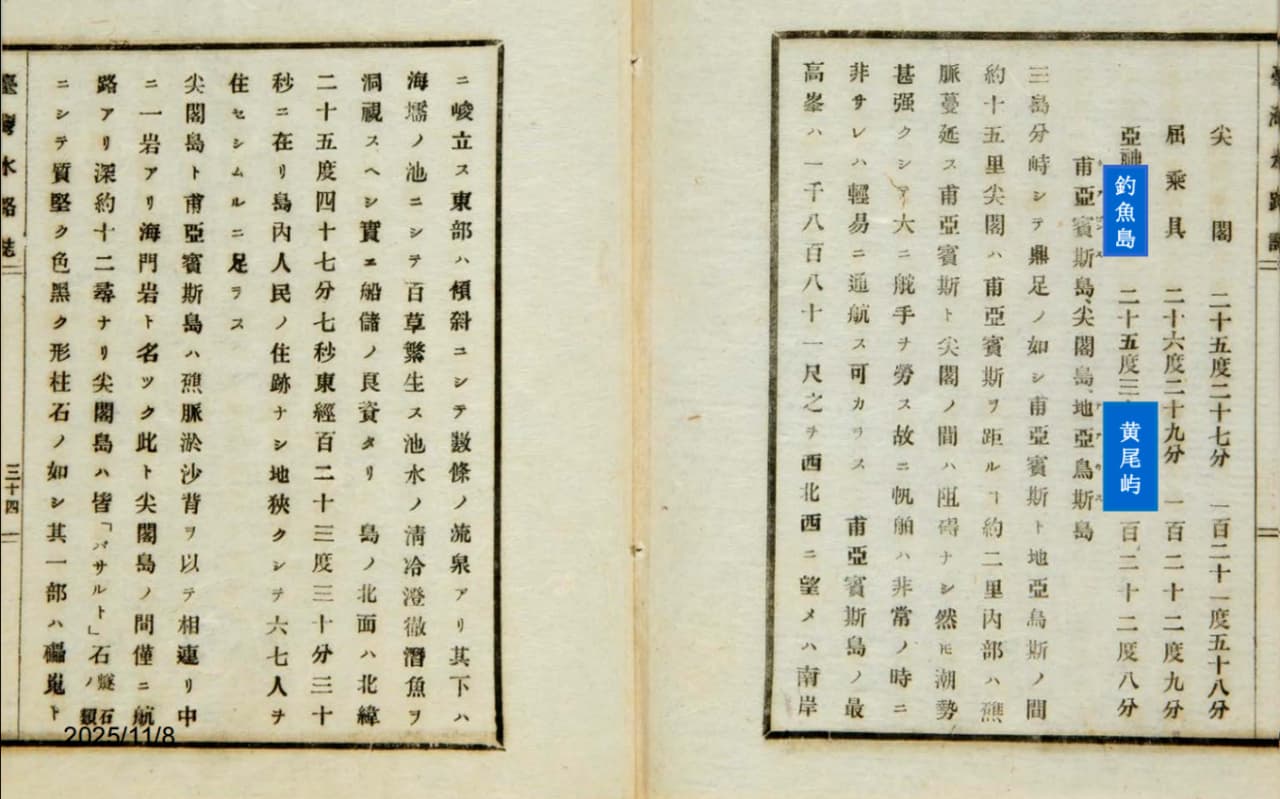 尖閣 二十五度二十七分 一百二十一度五十八分
屈乘具 二十六度二十九分 一百二十二度九分
亞 二十五度三 百二十二度八分
釣魚島
黄尾屿
甫亞賓斯島、尖閣島、地亞烏斯島
三島分峙シテ鼎足ノ如シ甫亞賓斯ト地亞烏斯ノ間
約十五里尖閣ハ甫亞賓斯ヲ距ルヿ約二里內部ハ礁
脈蔓延ス甫亞賓斯ト尖閣ノ間ハ阻碍ナシ然𪜈潮勢
甚强クシテ大ニ舵手ヲ勞ス故ニ帆舶ハ非常ノ時ニ
非サレハ輕易ニ通航ス可カラス 甫亞賓斯島ノ最
高峯ハ一千八百八十一尺之ヲ西北西ニ望メハ南岸
ニ峻立ス東部ハ傾斜ニシテ數條ノ流泉アリ其下ハ
海壖ノ池ニシテ百草繁生ス池水ノ淸冷澄徹潛魚ヲ
洞視スヘシ實ニ船儲ノ良資タリ 島ノ北面ハ北緯
二十五度四十七分七秒東經百二十三度三十分三十
秒ニ在リ島內人民ノ住跡ナシ地狹クシテ六七人ヲ
住セシムルニ足ラス
尖閣島ト甫亞賓斯島ハ礁脈淤沙背ヲ以テ相連リ中
ニ一岩アリ海門岩ト名ツク此ト尖閣島ノ間僅ニ航
路アリ深約十二尋ナリ尖閣島ハ皆「バサルト」石燧石ノ類
ニシテ質堅ク色黑ク形柱石ノ如シ其一部ハ礧嵬ト
臺灣水路誌 三十四
2025/11/8